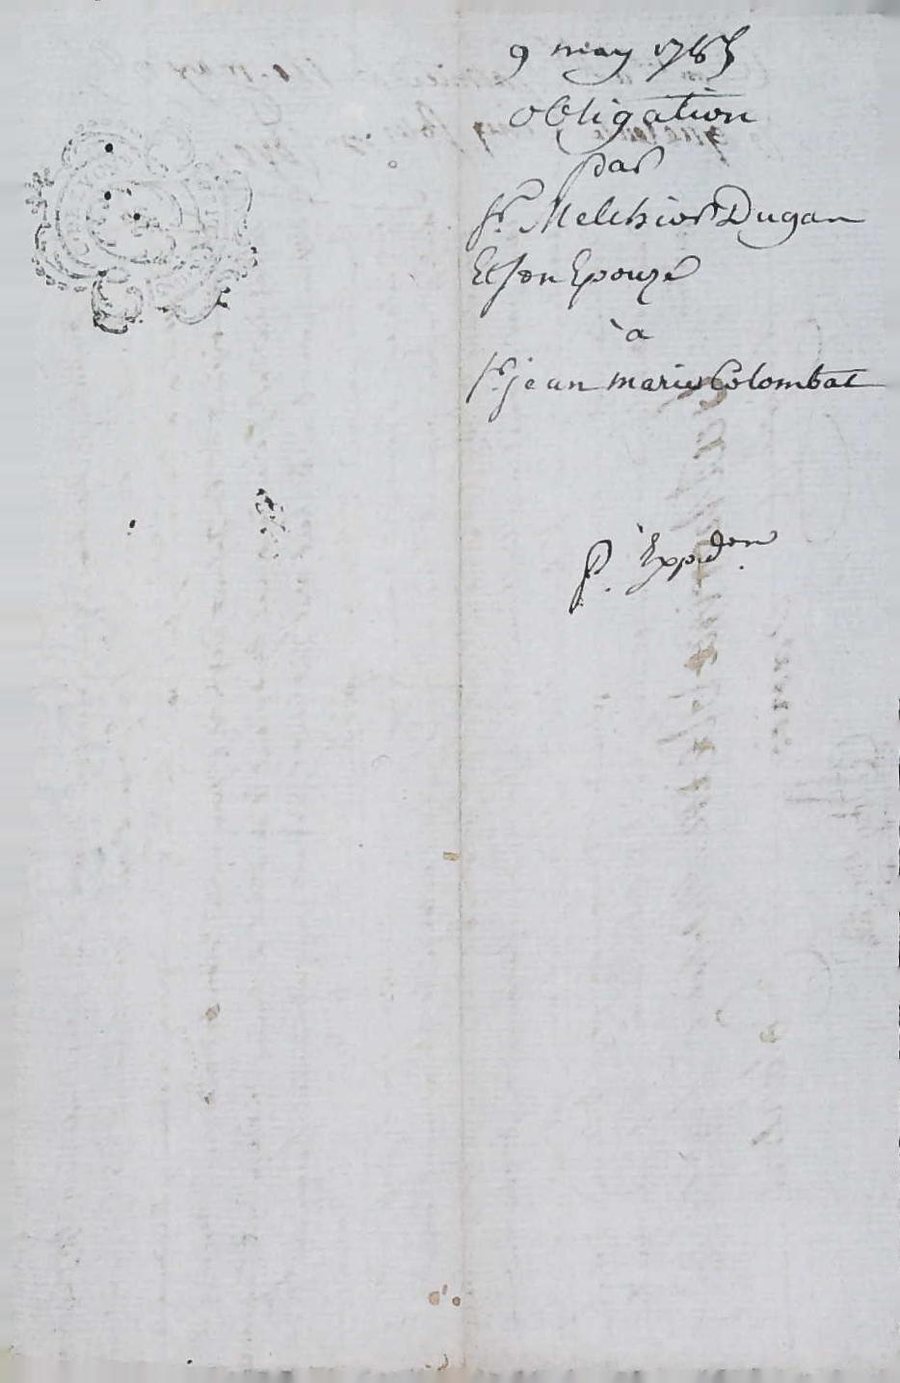 9 may 1785
obligation
par
Sr. Melchior Dugan
Et son Epouze
à
Sr. jean marie Colombat
Pr. Exp.don